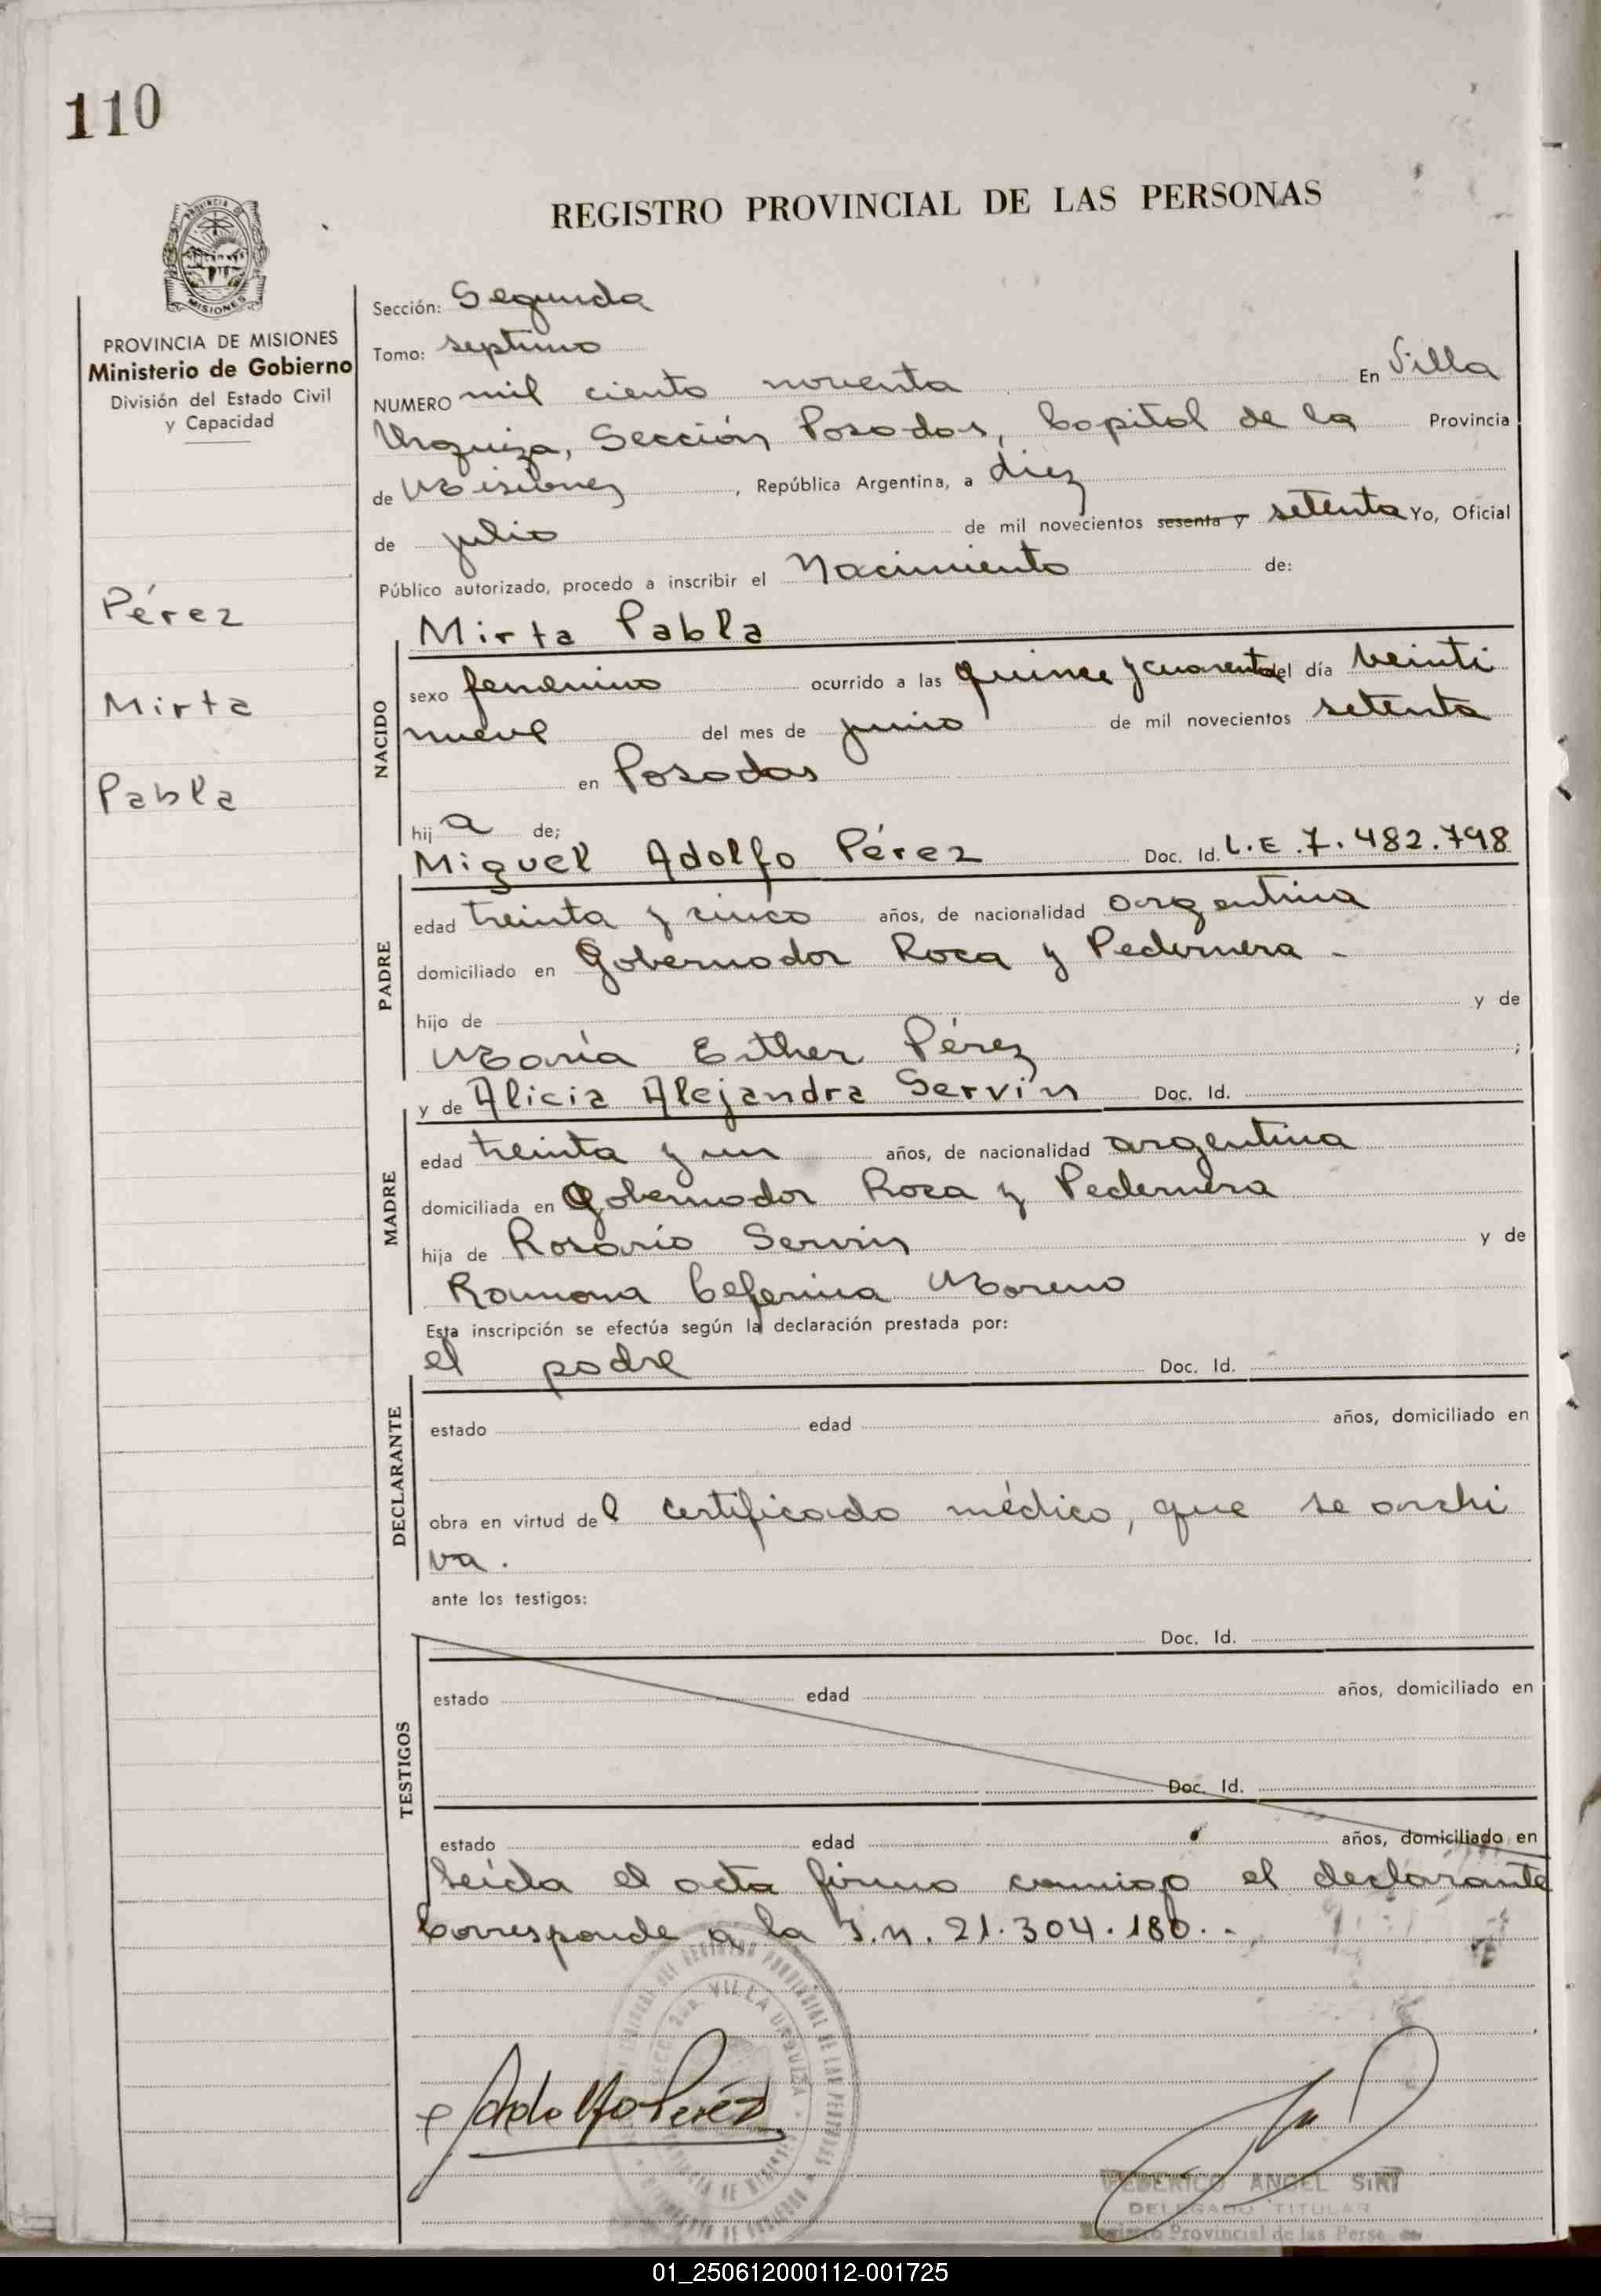 110
REGISTRO PROVINCIAL DE LAS PERSONAS
PROVINCIA DE
MISIONES
PROVINCIA DE MISIONES
Ministerio de Gobierno
División del Estado Civil
y Capacidad
Pérez
Mirta
Pabla
Sección: Segunda
Tomo: septimo
NUMERO mil ciento noventa En Villa
Urquiza, Sección Posadas, Capital de la Provincia
de Misiones, República Argentina, a diez
de julio de mil novecientos sesenta y setenta Yo, Oficial
Público autorizado, procedo a inscribir el Nacimiento de:
NACIDO
Mirta Pabla
sexo femenino ocurrido a las quince y cuarenta del día veinti
nueve del mes de junio de mil novecientos setenta
en Posadas
hij a de;
PADRE
Miguel Adolfo Pérez Doc. Id. L.E. 7.482.798
edad treinta y cinco años, de nacionalidad argentina
domiciliado en Gobernador Roca y Pedernera -
hijo de y de
María Esther Pérez ;
MADRE
y de Alicia Alejandra Servín Doc. Id.
edad treinta y un años, de nacionalidad argentina
domiciliada en Gobernador Roca y Pedernera
hija de Rosario Servin y de
Ramona Ceferina Moreno
Esta inscripción se efectúa según la declaración prestada por:
DECLARANTE
el padre Doc. Id.
estado edad años, domiciliado en
obra en virtud del certificado médico, que se archi
va.
ante los testigos:
TESTIGOS
Doc. Id.
estado edad años, domiciliado en
Doc. Id.
estado edad años, domiciliado en
Leída el acta firma conmigo el declarante
Corresponde a la I.n. 21.304.180.-
SECC. 2da. VILLA URQUIZA
Adolfo Pérez
FEDERICO ANGEL SIRI
DELEGADO TITULAR
Registro Provincial de las Perso
01_250612000112-001725